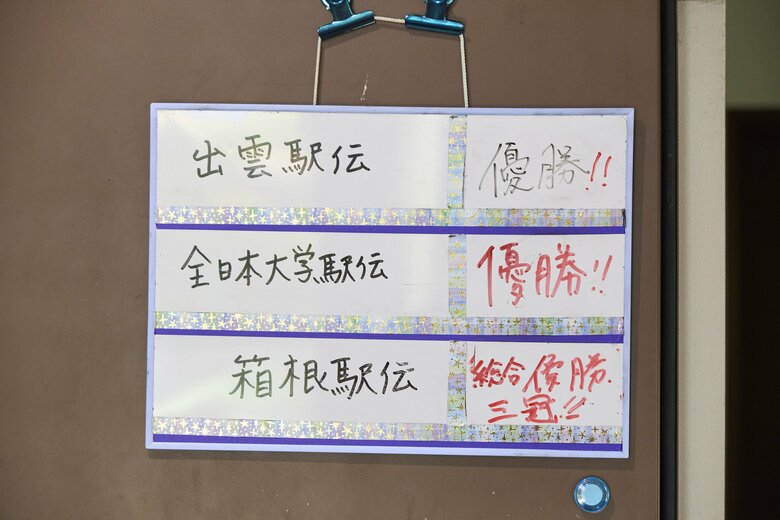 出雲駅伝 優勝!!
全日本大学駅伝 優勝!!
箱根駅伝 総合優勝
三冠!!